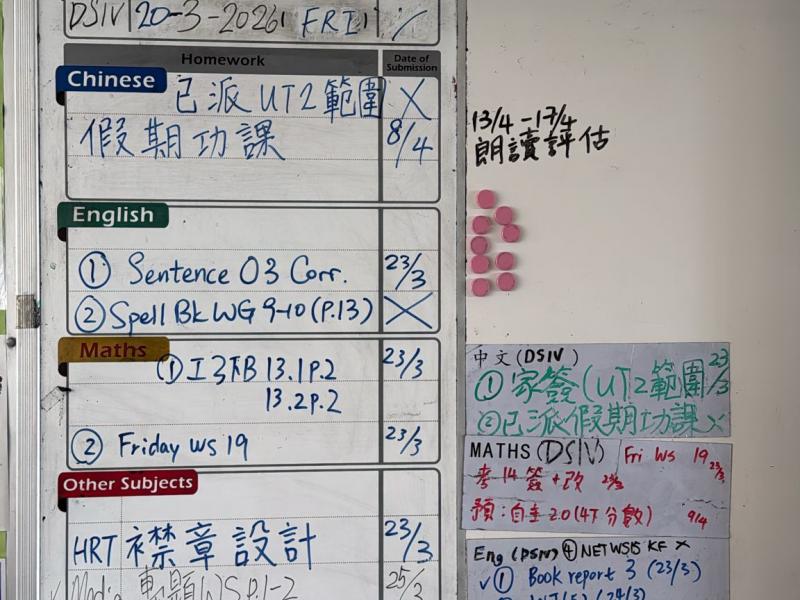 DSIV 20-3-2026 FRI
Homework Date of Submission
Chinese
已派 UT2 範圍 X
假期功課 8/4
English
① Sentence 03 Corr. 23/3
② Spell Bk WG 9-10 (P.13) X
Maths
① 工3下B 13.1 p.2 23/3
13.2 p.2
② Friday WS 19 23/3
Other Subjects
HRT 襟章設計 23/3
專題 WS p.1-2 25/3
13/4 - 17/4
朗讀評估
中文 (DSIV)
① 家簽 (UT2 範圍 23/3
② 已派假期功課 X
MATHS (DSIV) Fri WS 19 23/3
考 14 簽 + 改 23/3
預: 自主 2.0 (4下分數) 9/4
Eng (DSIV) ④ NETWS15 KF X
✓ ① Book report 3 (23/3)
(24/3)